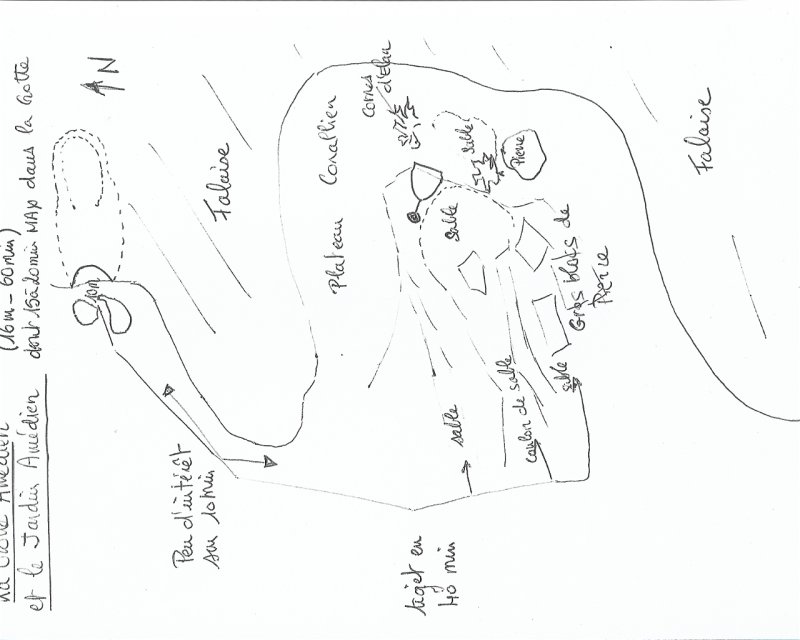 La Grotte Amédien (16m - 60min)
et le Jardin Amédien dont 15 à 20min MAp dans la Grotte
N
10m
Falaise
Peu d'intérêt
sur 10min
Plateau Corallien
Cornes
d'Elan
Sable
Pierre
Sable
Gros blocs de
Pierre
sable
couloir de sable
sable
trajet en
40 min
Falaise